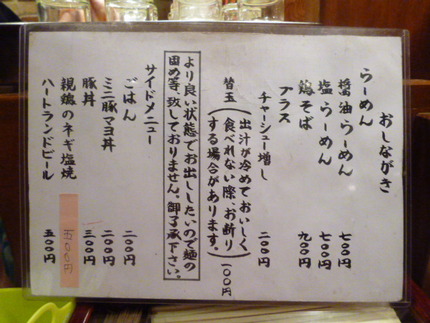 おしながき
らーめん
醤油らーめん 七〇〇円
塩らーめん 七〇〇円
鶏そば 九〇〇円
プラス
チャーシュー増し 二〇〇円
替玉(出汁が冷めておいしく食べれない際、お断りする場合があります。) 一〇〇円
より良い状態でお出ししたいので麺の
固め等、致しておりません。御了承下さい。
サイドメニュー
ごはん 二〇〇円
ミニ豚マヨ丼 二〇〇円
豚丼 三〇〇円
親鶏のネギ塩焼 五〇〇円
ハートランドビール 五〇〇円